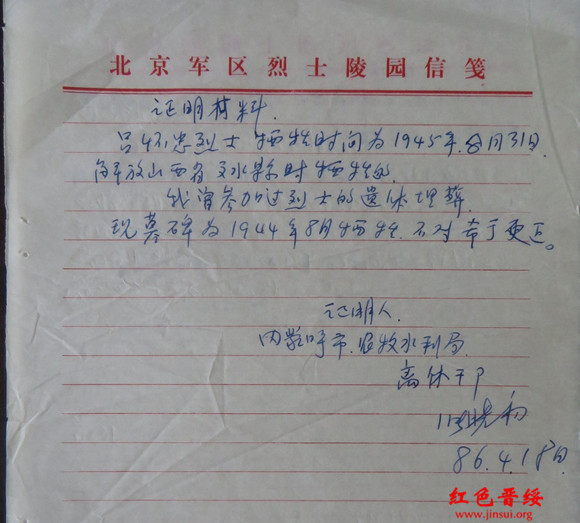 北京军区烈士陵园信笺
证明材料
吕怀忠烈士牺牲时间为1945年8月31日
解放山西省文水县时牺牲的
我曾参加过烈士的遗体埋葬
现墓碑为1944年8月牺牲不对希予更正。
证明人
内蒙呼市农牧水利局
离休干
86.4.18日
红色晋绥
www.jinsui.org